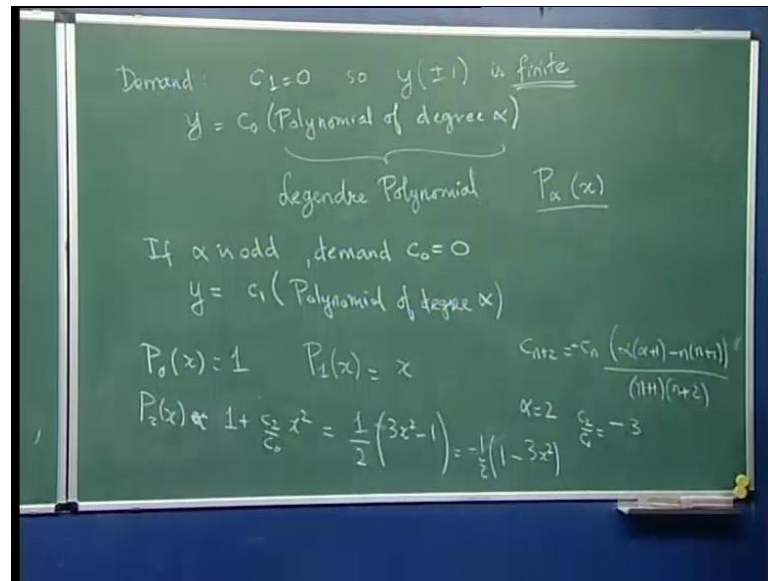 Demand: C₁=0 so y(±1) is finite
y = C₀ (Polynomial of degree α)
Legendre Polynomial P_α(x)
If α is odd, demand C₀=0
y = C₁ (Polynomial of degree α)
P₀(x) = 1 P₁(x) = x
C_{n+2} = -C_n (α(α+1)-n(n+1))/((n+1)(n+2))
P₂(x) ∝ 1 + C₂/C₀ x² = 1/2 (3x²-1) = -1/2 (1-3x²)
α=2 C₂/C₀ = -3